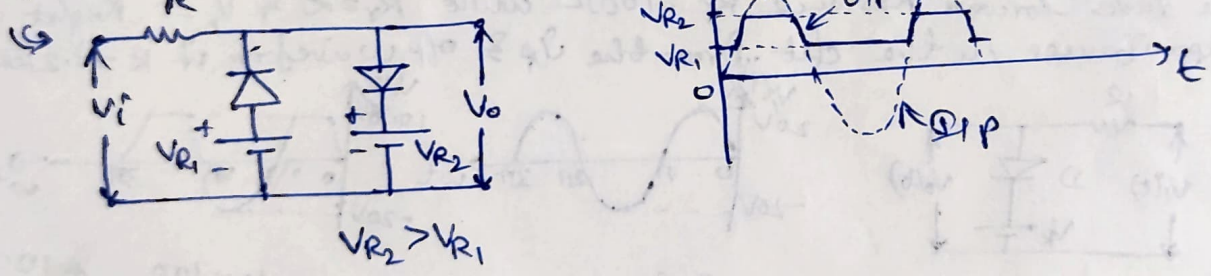 R
Vi
VR1
+
-
+
-
VR2
Vo
VR2 > VR1
VR2
VR1
0
t
I/P